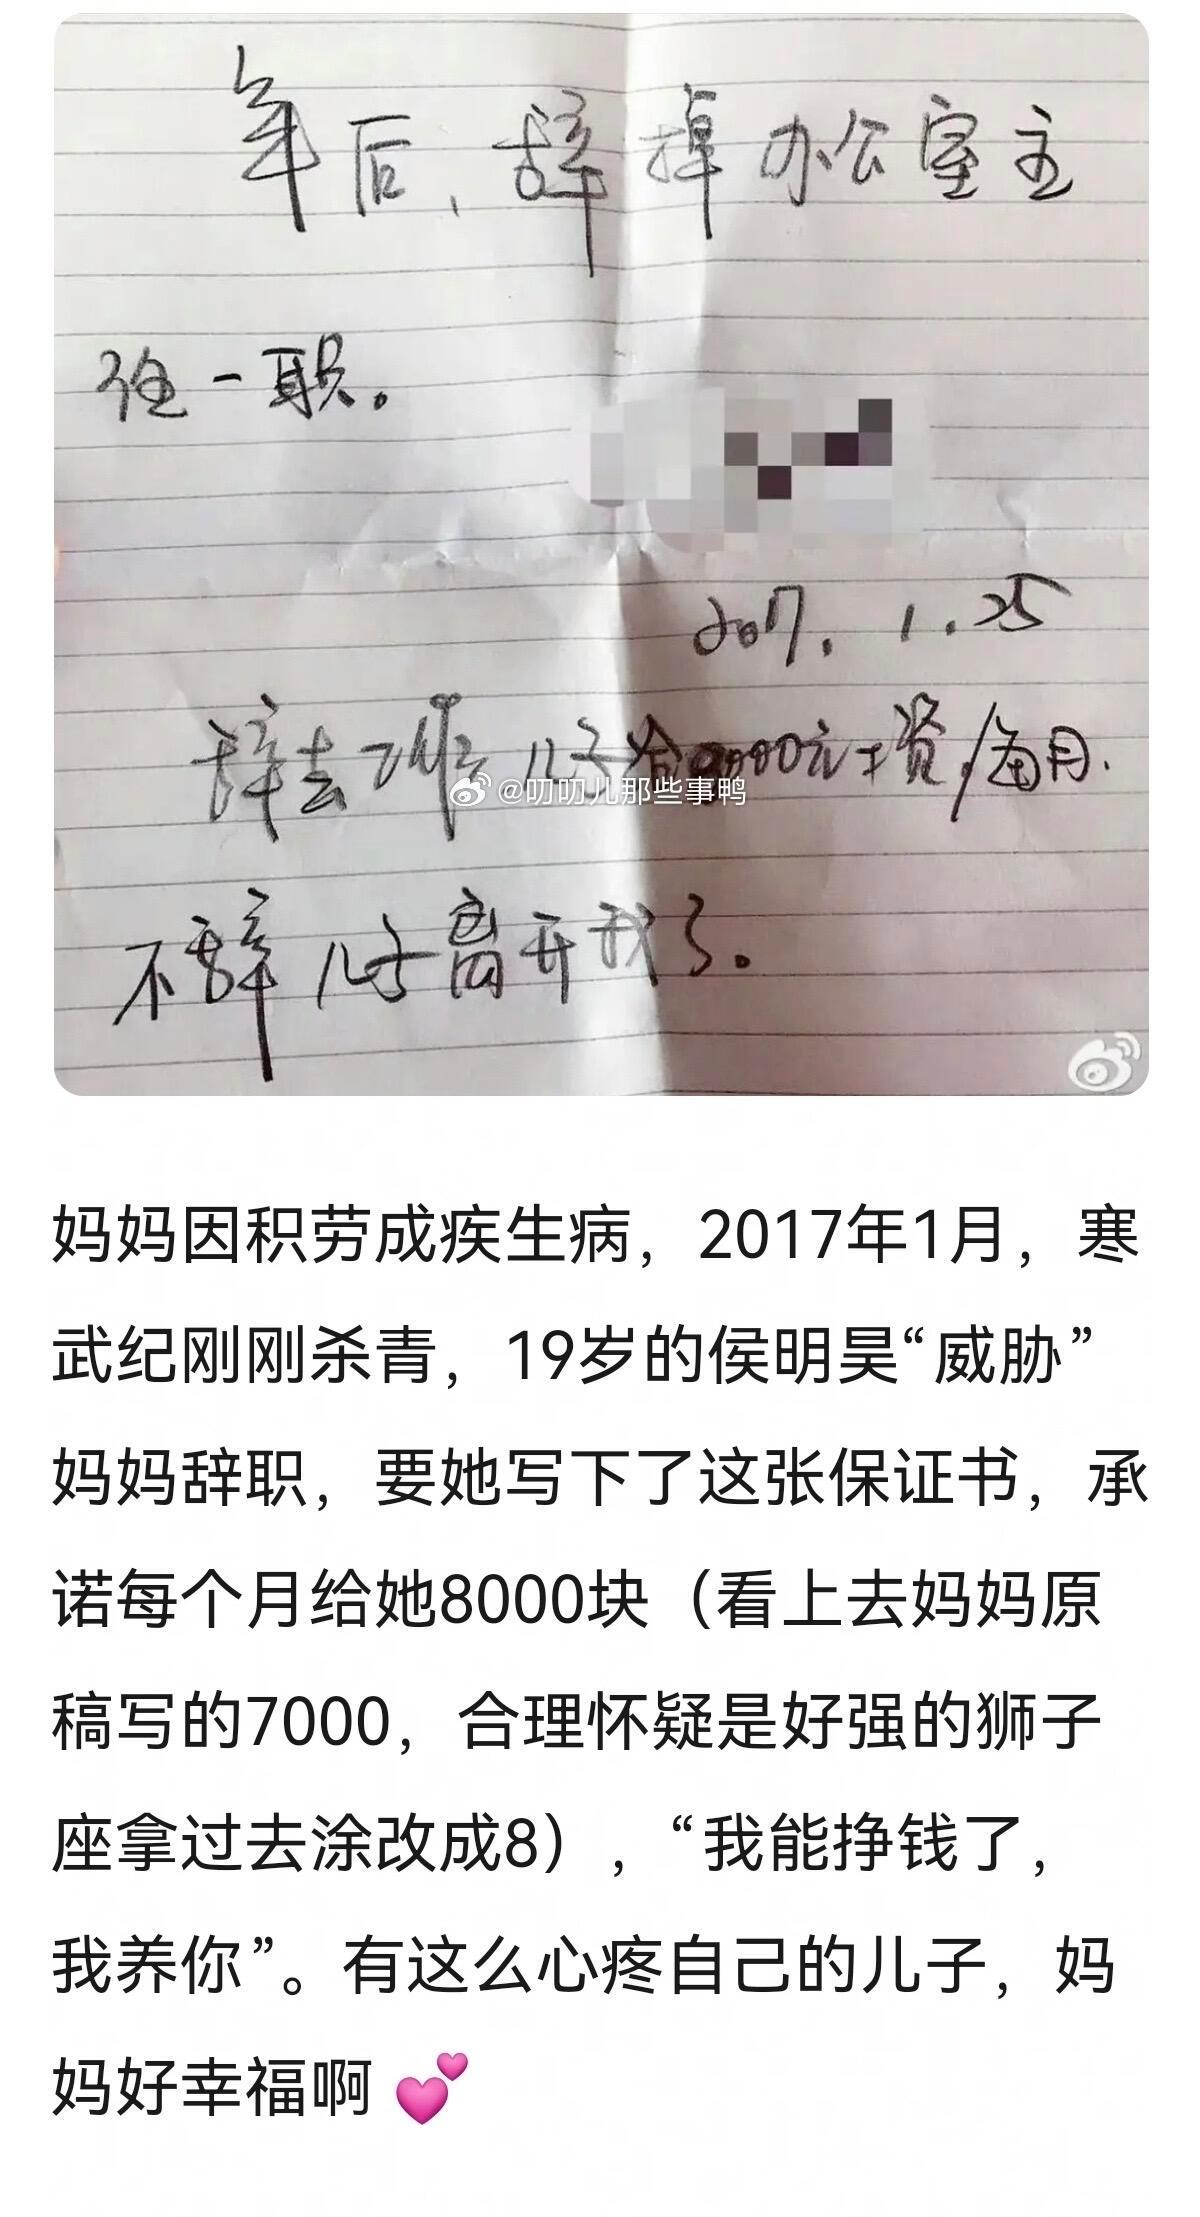 年后，辞掉办公室主
任一职。
2017.1.25
辞去工作，儿子给8000元工资/每月.
@叨叨儿那些事鸭
不辞儿子离开我了。
妈妈因积劳成疾生病，2017年1月，寒
武纪刚刚杀青，19岁的侯明昊“威胁”
妈妈辞职，要她写下了这张保证书，承
诺每个月给她8000块（看上去妈妈原
稿写的7000，合理怀疑是好强的狮子
座拿过去涂改成8），“我能挣钱了，
我养你”。有这么心疼自己的儿子，妈
妈好幸福啊 💕